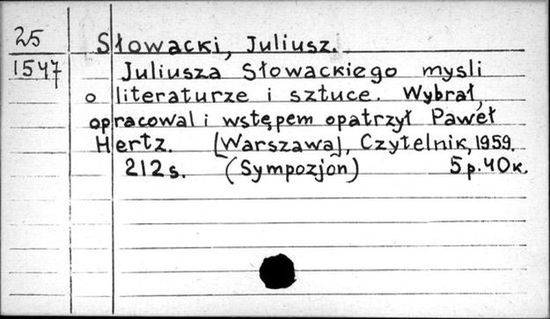 25
1547
Słowacki, Juliusz.
Juliusza Słowackiego mysli
o literaturze i sztuce. Wybrał,
opracowal i wstępem opatrzył Paweł
Hertz. [Warszawa], Czytelnik, 1959.
212 s. (Sympozjon) 5 p. 40 к.